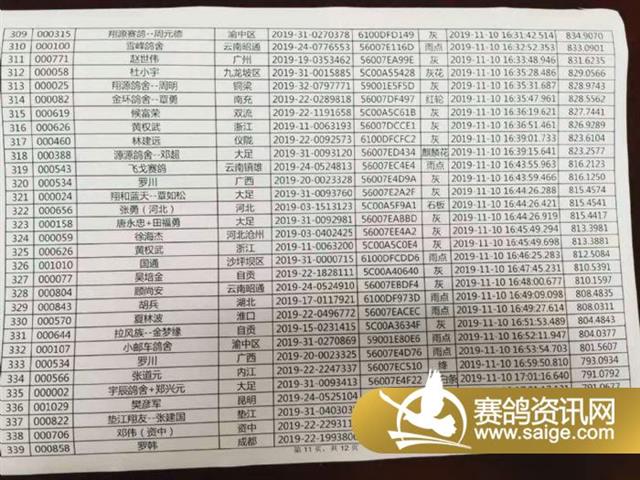 309 000315 翔源赛鸽--周元德 渝中区 2019-31-0270378 6100DFD149 灰 2019-11-10 16:31:42.514 834.9070
310 000100 雪峰鸽舍 云南昭通 2019-24-0776553 56007E116D 雨点 2019-11-10 16:32:52.353 833.0901
311 000771 赵世伟 广州 2019-19-0353462 56007EA99E 灰 2019-11-10 16:33:48.946 831.6235
312 000058 杜小宇 九龙坡区 2019-31-0015885 5C00A55428 灰花 2019-11-10 16:35:28.486 829.0566
313 000025 翔源鸽舍--周明 铜梁 2019-32-0797771 59001E5F5D 灰 2019-11-10 16:35:31.687 828.9743
314 000082 金环鸽舍--章勇 南充 2019-22-0289818 56007DF497 红轮 2019-11-10 16:35:47.961 828.5562
315 000619 候富荣 双流 2019-22-1191658 5C00A5C61B 灰 2019-11-10 16:36:19.621 827.7441
316 000626 黄权武 浙江 2019-11-0063193 56007DCCE1 灰 2019-11-10 16:36:51.461 826.9289
317 000460 林建远 仪陇 2019-22-0092573 6100DFCFC2 灰 2019-11-10 16:39:01.733 823.6104
318 000388 源源鸽舍--邓超 大足 2019-31-0093120 56007ED434 麒麟花 2019-11-10 16:39:15.423 823.2577
319 000543 飞戈赛鸽 云南镇雄 2019-24-0524813 56007EC4E4 雨点 2019-11-10 16:43:55.963 816.2123
320 000534 罗川 广西 2019-20-0023328 56007E4D9A 灰 2019-11-10 16:43:59.412 816.1250
321 000024 翔和蓝天--章如松 大足 2019-31-0093760 56007E2A2F 灰 2019-11-10 16:44:26.288 815.4574
322 000656 张勇（河北） 河北 2019-03-1513123 5C00A5F9A1 石板 2019-11-10 16:44:26.919 815.4417
323 000158 唐永忠+田福勇 大足 2019-31-0092981 56007EABBD 灰 2019-11-10 16:44:26.919 815.4417
324 000059 徐海杰 河北沧州 2019-03-0402427 56007EE4A2 灰 2019-11-10 16:45:49.294 813.3981
325 000626 黄权武 浙江 2019-11-0063200 5C00A5C0E4 灰 2019-11-10 16:45:49.698 813.3881
326 001010 国通 沙坪坝区 2019-31-0060000 6100DFCDD6 雨点 2019-11-10 16:46:25.235 812.5084
327 000077 吴培金 自贡 2019-22-1828111 5C00A40640 灰 2019-11-10 16:47:45.231 810.5391
328 000804 顾尚安 云南昭通 2019-24-0524910 56007EBDF4 灰 2019-11-10 16:48:00.677 810.1597
329 000843 胡兵 湖北 2019-17-0117921 6100DF973D 雨点 2019-11-10 16:49:09.098 808.4835
330 000570 夏林波 淮口 2019-22-0496772 56007EAC5E 雨点 2019-11-10 16:49:27.614 808.0311
331 000644 拉风族--金梦缘 自贡 2019-15-0231415 5C00A3634F 灰 2019-11-10 16:51:53.489 804.4843
332 000107 小邮车鸽舍 渝中区 2019-31-0270869 59001E80E6 雨点 2019-11-10 16:52:11.947 804.0377
333 000534 罗川 广西 2019-20-0023325 56007E4D76 雨点 2019-11-10 16:53:54.703 801.5607
334 000566 张道元 内江 2019-22-2247337 56007EC510 绛 2019-11-10 16:59:50.810 793.0934
335 000002 宇辰鸽舍+郑兴元 大足 2019-31-0093413 56007E4F22 白条 2019-11-10 17:01:16.640 791.0792
336 001029 樊彦军 昆明 2019-24-0525104
337 000822 垫江翔友--张建国 垫江 2019-31-040303
338 000706 邓伟（资中） 资中 2019-22-229311
339 000858 罗韩 成都 2019-22-1993800
第11页，共12页
赛鸽资讯网
www.saige.com